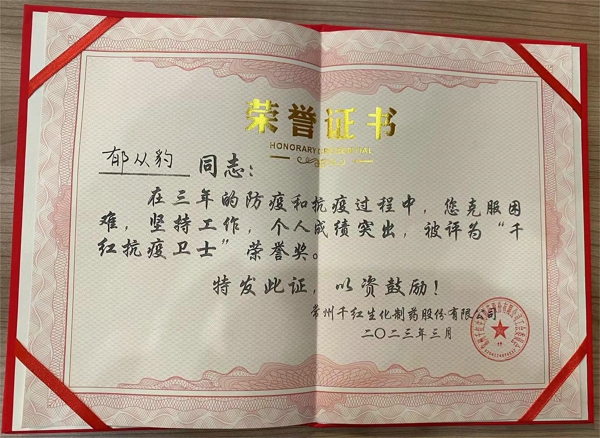 荣誉证书
HONORARY CREDENTIAL
郁从豹 同志：
在三年的防疫和抗疫过程中，您克服困
难，坚持工作，个人成绩突出，被评为“千
红抗疫卫士”荣誉奖。
特发此证，以资鼓励！
常州千红生化制药股份有限公司
二〇二三年三月